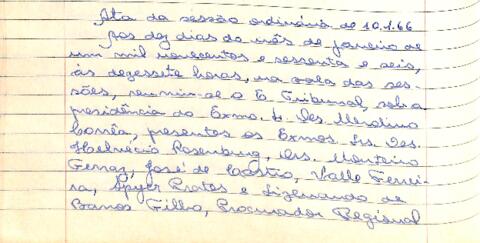 Ata da sessão ordinária de 10.1.66
Aos dez dias do mês de janeiro de
um mil novecentos e sessenta e seis,
às dezessete horas, na sala das ses-
sões, reuniu-se o E. Tribunal, sob a
presidência do Exmo. Sr. Des. Merolino
Corrêa, presentes os Exmos. Srs. Des.
Helvécio Rosenburg, Drs. Monteiro
Ferraz, José de Castro, Valle Ferrei-
ra, Spyer Prates e Lizenando de
Barros Filho, Procurador Regional